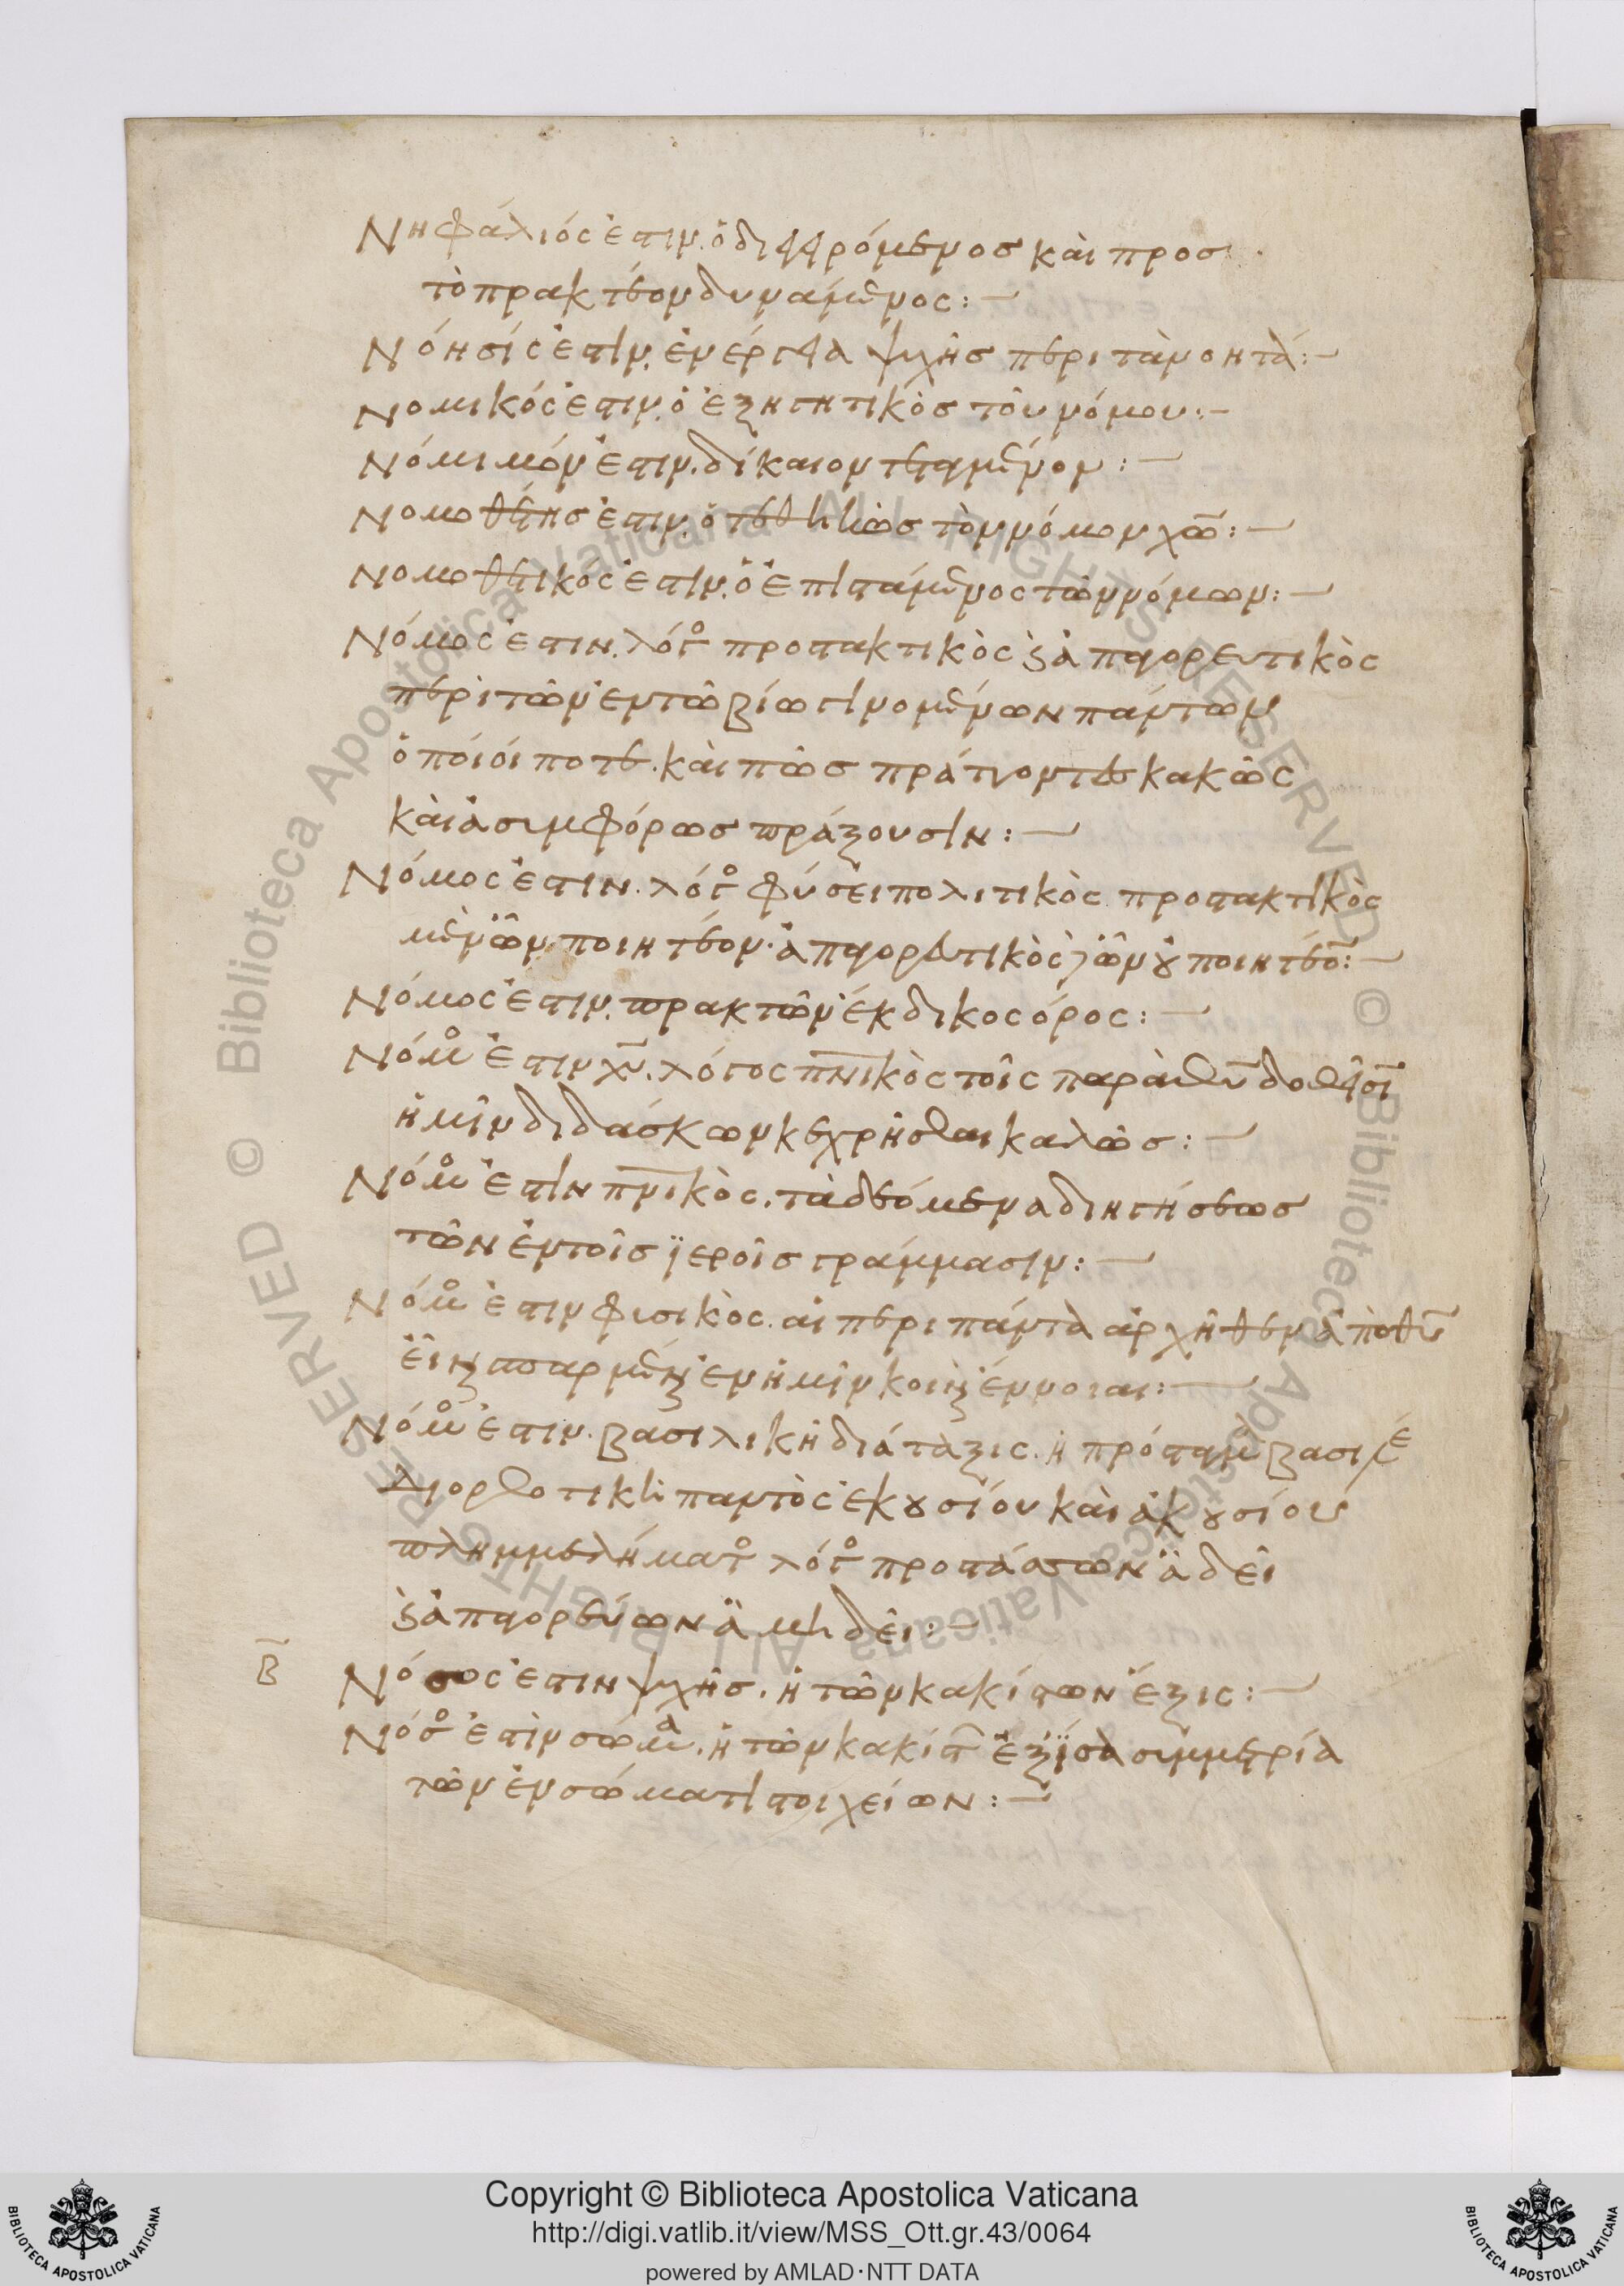 Νηφάλιός ἐστιν. ὁ διεγειρόμενος καὶ προς
τὸ πρακτέον δυνάμενος:—
Νόησίς ἐστιν. ἐνέργεια ψυχῆς περι τὰ νοητὰ:—
Νομικός ἐστιν. ὁ ἐξηγητικὸς τοῦ νόμου:—
Νόμιμόν ἐστιν. δίκαιον τεταγμένον:—
Νομοθέτης ἐστιν. ὁ τεθηκὼς τὸν νόμον
Νομοθετικός ἐστιν. ὁ ἐπιστάμενος τῶν νόμων:—
Νόμος ἐστιν. λόγος προστακτικὸς ϗ ἀπαγορευτικὸς
περὶ τῶν ἐν τῶ βίω γινομένων πάντων
ὁποίοι ποτε. καὶ πῶς πράττοντες κακῶς
καὶ ἀσυμφόρως πράξουσιν:—
Νόμος ἐστιν. λόγος φύσει πολιτικὸς. προστακτικὸς
μὲν ὧν ποιητέον. ἀπαγορευτικὸς δὲ ὧν οὐ ποιητέον:—
Νόμος ἐστιν. πρακτῶν ἔκδικος ὅρος:—
Νόμος ἐστιν χυ. λόγος πνικὸς τοῖς παρὰ θυ δοθεῖσι
ἡμῖν διδάσκων κεχρῆσθαι καλῶς:—
Νόμος ἐστιν πνικὸς. τὰ δεόμενα διηγήσεως
τῶν ἐν τοῖς ϊεροῖς γράμμασιν:—
Νόμος ἐστιν φυσικὸς. αἱ περι πάντα ἀρχῆθεν ἀπὸ θυ
ἐν ἡμῖν κοιναὶ ἔννοιαι:—
Νόμος ἐστιν. βασιλικὴ διάταξις. ἢ πρόσταγμα βασιλέως
διορθοτικὴ παντὸς ἑκουσίου καὶ ἀκουσίου
πλημμελήματος λόγος προστάσσων ἃ δεῖ
ϗ ἀπαγορεύων ἃ μὴ δεῖ:—
Β Νόσος ἐστιν ψυχῆς. ἡ τῶν κακίστων ἕξις:—
Νόσος ἐστὶν σώματος. ἡ τῶν κακίστων ἀσυμμετρία
τῶν ἐν σώματι στοιχείων:—
Copyright © Biblioteca Apostolica Vaticana
http://digi.vatlib.it/view/MSS_Ott.gr.43/0064
powered by AMLAD·NTT DATA
BIBLIOTECA APOSTOLICA VATICANA
BIBLIOTECA APOSTOLICA VATICANA
© Biblioteca Apostolica Vaticana ALL RIGHTS RESERVED
© Biblioteca Apostolica Vaticana ALL RIGHTS RESERVED